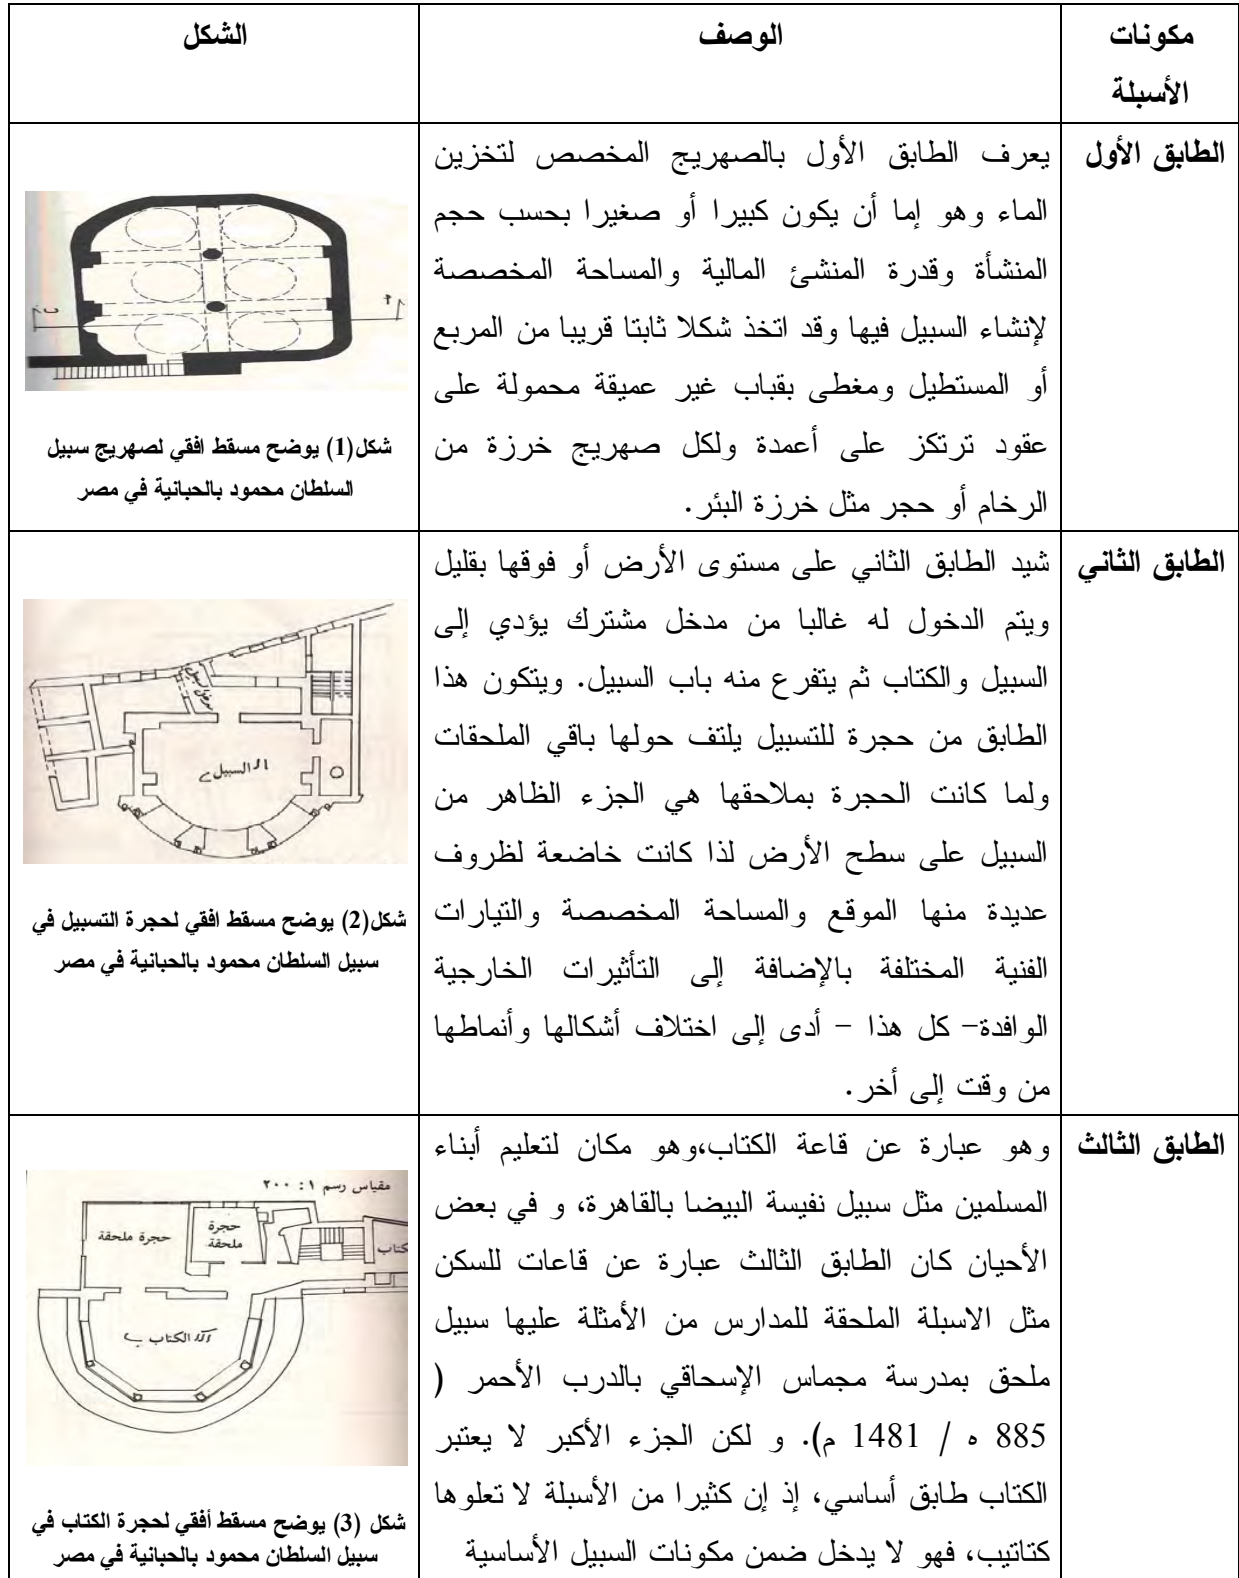 مكونات الوصف الشكل
الأسبلة
الطابق الأول
يعرف الطابق الأول بالصهريج المخصص لتخزين
الماء وهو إما أن يكون كبيرا أو صغيرا بحسب حجم
المنشأة وقدرة المنشئ المالية والمساحة المخصصة
لإنشاء السبيل فيها وقد اتخذ شكلا ثابتا قريبا من المربع
أو المستطيل ومغطى بقباب غير عميقة محمولة على
عقود ترتكز على أعمدة ولكل صهريج خرزة من
الرخام أو حجر مثل خرزة البئر.
شكل(1) يوضح مسقط افقي لصهريج سبيل
السلطان محمود بالحبانية في مصر
الطابق الثاني
شيد الطابق الثاني على مستوى الأرض أو فوقها بقليل
ويتم الدخول له غالبا من مدخل مشترك يؤدي إلى
السبيل والكتاب ثم يتفرع منه باب السبيل. ويتكون هذا
الطابق من حجرة للتسبيل يلتف حولها باقي الملحقات
ولما كانت الحجرة بملاحقها هي الجزء الظاهر من
السبيل على سطح الأرض لذا كانت خاضعة لظروف
عديدة منها الموقع والمساحة المخصصة والتيارات
الفنية المختلفة بالإضافة إلى التأثيرات الخارجية
الوافدة- كل هذا - أدى إلى اختلاف أشكالها وأنماطها
من وقت إلى أخر.
السبيل
شكل(2) يوضح مسقط افقي لحجرة التسبيل في
سبيل السلطان محمود بالحبانية في مصر
الطابق الثالث
وهو عبارة عن قاعة الكتاب،وهو مكان لتعليم أبناء
المسلمين مثل سبيل نفيسة البيضا بالقاهرة، و في بعض
الأحيان كان الطابق الثالث عبارة عن قاعات للسكن
مثل الاسبلة الملحقة للمدارس من الأمثلة عليها سبيل
ملحق بمدرسة مجماس الإسحاقي بالدرب الأحمر (
885 ه / 1481 م). و لكن الجزء الأكبر لا يعتبر
الكتاب طابق أساسي، إذ إن كثيرا من الأسبلة لا تعلوها
كتاتيب، فهو لا يدخل ضمن مكونات السبيل الأساسية
مقياس رسم ١: ٢٠٠
حجرة ملحقة
حجرة
ملحقة
كتاب
الكتاب
شكل (3) يوضح مسقط أفقي لحجرة الكتاب في
سبيل السلطان محمود بالحبانية في مصر